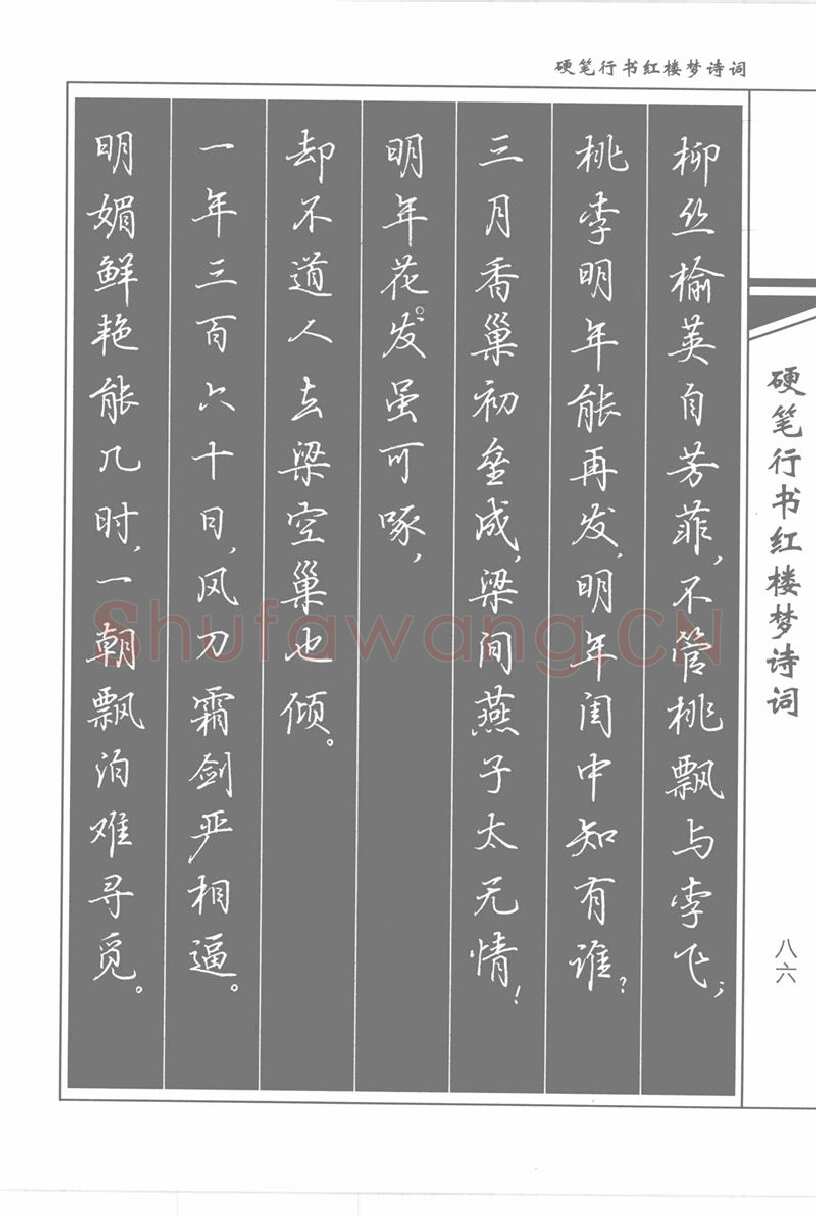 硬笔行书红楼梦诗词
柳丝榆荚自芳菲，不管桃飘与李飞；
桃李明年能再发，明年闺中知有谁？
三月香巢初垒成，梁间燕子太无情！
明年花发虽可啄，
却不道人去梁空巢也倾。
一年三百六十日，风刀霜剑严相逼。
明媚鲜艳能几时，一朝飘泊难寻觅。
硬笔行书红楼梦诗词
八六
Shufawang.CN